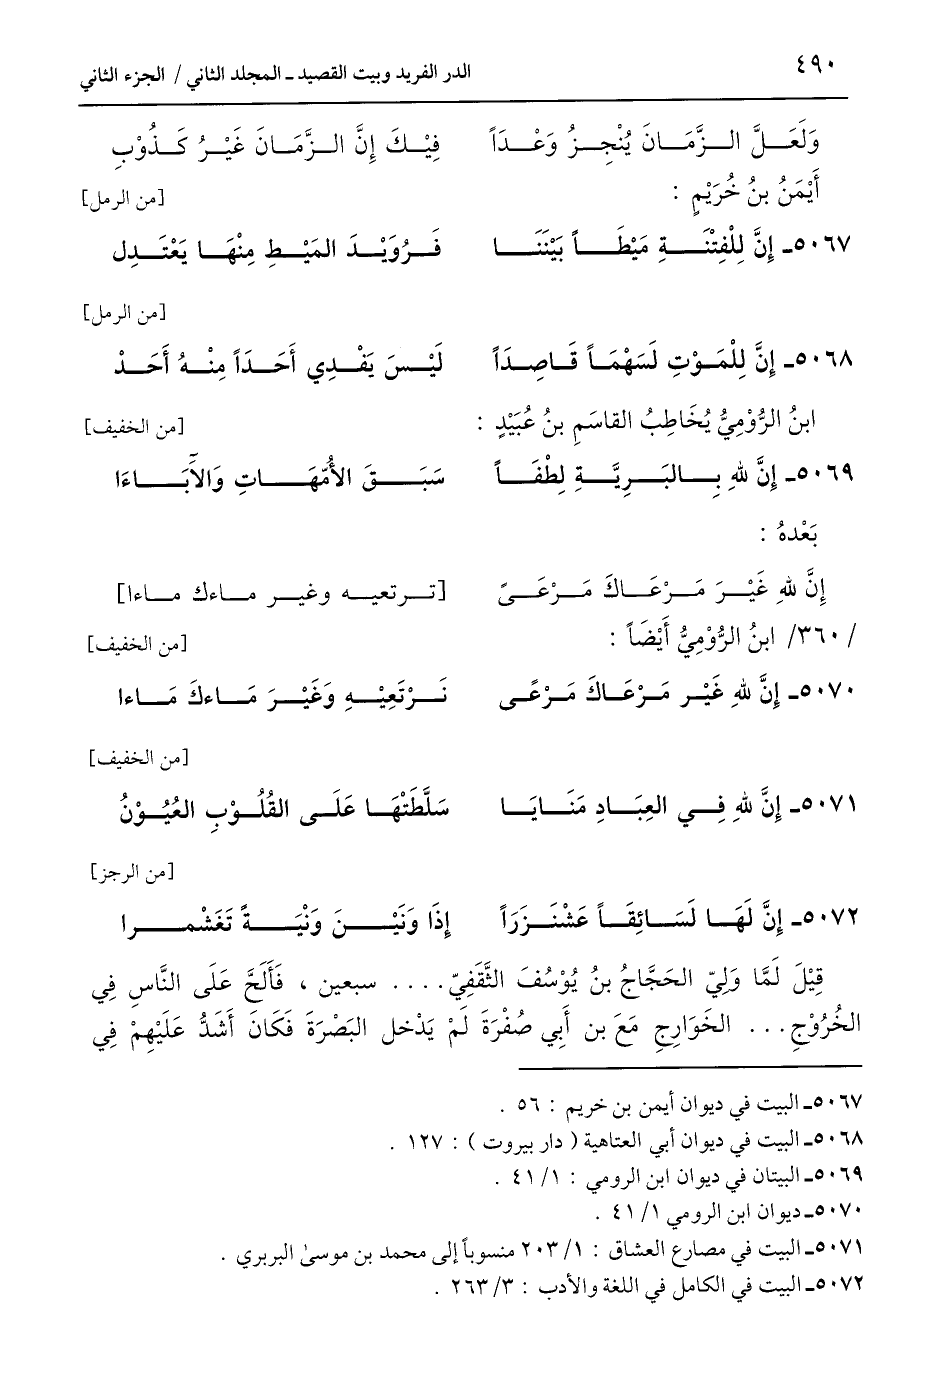 ٤٩٠
الدر الفريد وبيت القصيد ـ المجلد الثاني / الجزء الثاني
وَلَعَلَّ الزَّمَانَ يُنْجِزُ وَعْدَاً فِيْكَ إِنَّ الزَّمَانَ غَيْرُ كَذُوْبِ
أَيْمَنُ بنُ خُرَيْمٍ : [من الرمل]
٥٠٦٧ـ إِنَّ لِلْفِتْنَةِ مَيْطَاً بَيْنَنَا فَرُوَيْدَ المَيْطِ مِنْهَا يَعْتَدِل
[من الرمل]
٥٠٦٨ـ إِنَّ لِلْمَوْتِ لَسَهْمَاً قَاصِدَاً لَيْسَ يَفْدِي أَحَدَاً مِنْهُ أَحَدْ
ابنُ الرُّوْمِيُّ يُخَاطِبُ القَاسَمِ بنُ عُبَيْدٍ : [من الخفيف]
٥٠٦٩ـ إِنَّ للهِ بِالبَرِيَّةِ لِطْفَاً سَبَقَ الأُمَّهَاتِ وَالآبَاءَا
بَعْدهُ :
إِنَّ للهِ غَيْرَ مَرْعَاكَ مَرْعَىً [ترتعيه وغير ماءك ماءا]
/٣٦٠/ ابنُ الرُّوْمِيُّ أَيْضَاً : [من الخفيف]
٥٠٧٠ـ إِنَّ للهِ غَيْر مَرْعَاكَ مَرْعًى نَرْتَعِيْهِ وَغَيْرَ مَاءكَ مَاءا
[من الخفيف]
٥٠٧١ـ إِنَّ للهِ فِي العِبَادِ مَنَايَا سَلَّطَتْهَا عَلَى القُلُوْبِ العُيُوْنُ
[من الرجز]
٥٠٧٢ـ إِنَّ لَهَا لَسَائِقَاً عَشْنَزَرَاً إِذَا وَنَيْنَ وَنْيَةً تَغَشْمرا
قِيْلَ لَمَّا وَلِيّ الحَجَّاجُ بنُ يُوْسُفَ الثَّقَفِيّ .... سبعين ، فَأَلَحَّ عَلَى النَّاسِ فِي
الخُرُوْجِ ... الخَوَارِجِ مَعَ بن أَبِي صُفْرَةَ لَمْ يَدْخل البَصْرَةَ فَكَانَ أَشَدُّ عَلَيْهِمْ فِي
٥٠٦٧ـ البيت في ديوان أيمن بن خريم : ٥٦ .
٥٠٦٨ـ البيت في ديوان أبي العتاهية ( دار بيروت ) : ١٢٧ .
٥٠٦٩ـ البيتان في ديوان ابن الرومي : ١/ ٤١ .
٥٠٧٠ـ ديوان ابن الرومي ١/ ٤١ .
٥٠٧١ـ البيت في مصارع العشاق : ١/ ٢٠٣ منسوباً إلى محمد بن موسىٰ البربري .
٥٠٧٢ـ البيت في الكامل في اللغة والأدب : ٣/ ٢٦٣ .